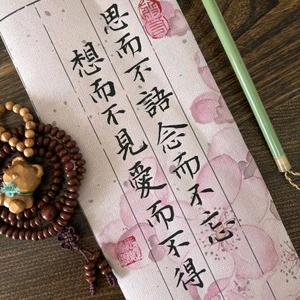 思而不語念而不忘
想而不見愛而不得